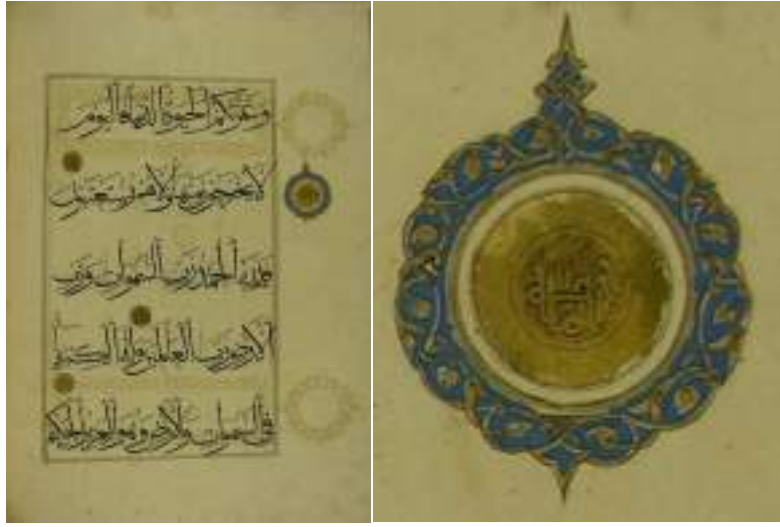 وغرتكم الحيوة الدنيا فاليوم
لا يخرجون منها ولا هم يستعتبون
فلله الحمد رب السموات ورب
الأرض رب العالمين وله الكبرياء
في السموات والأرض وهو العزيز الحكيم